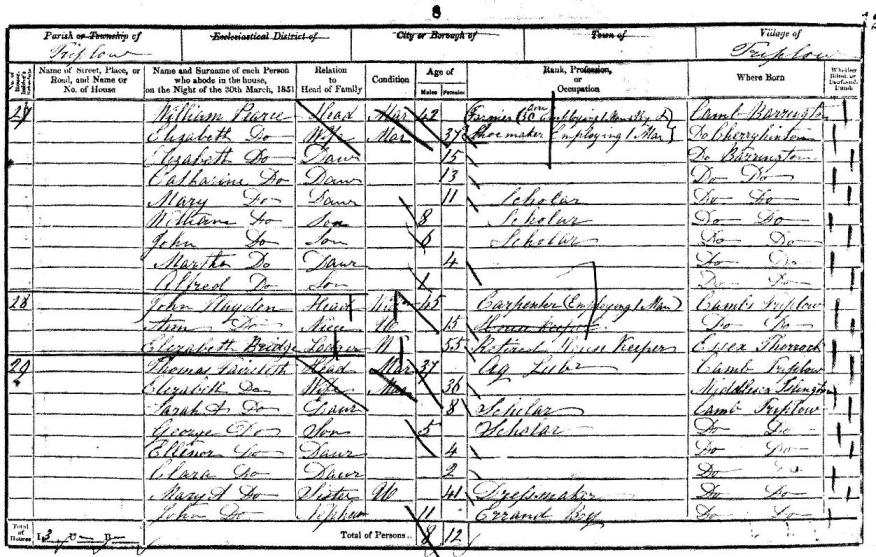 8
Parish or Township of Ecclesiastical District of City or Borough of Town of Village of
Triplow Triplow
Name of Street, Place, or Road, and Name or No. of House
Name and Surname of each Person who abode in the house, on the Night of the 30th March, 1851
Relation to Head of Family
Condition
Age of
Males Females
Rank, Profession, or Occupation
Where Born
27 William Pearce Head Mar 42 Farmer Camb Barrington
Elizabeth Do Wife Mar 37 Shoemaker Employing 1 Man Do Cherryhinton
Elizabeth Do Daur 15 Do Barrington
Catharine Do Daur 13 Do Do
Mary Do Daur 11 Scholar Do Do
William Do Son 8 Scholar Do Do
John Do Son 6 Scholar Do Do
Martha Do Daur 4 Do Do
Alfred Do Son Do Do
28 John Hayden Head 45 Carpenter (Employing 1 Man) Cambs Triplow
Ann Do Niece U 15 House Keeper Do Do
Elizabeth Bridge Lodger 55 Retired House Keeper Essex
29 Thomas Head Mar 37 Ag Labr Camb Triplow
Elizabeth Do Wife Mar 36 Middlesex Islington
Sarah A Do Daur 8 Scholar Camb Triplow
George Do Son 5 Scholar Do Do
Ellinor Do Daur 4 Do Do
Clara Do Daur 2 Do Do
Mary A Do Sister U 41 Dressmaker Do Do
John Do Nephew 11 Errand Boy Do Do
Total of Houses I 3 U B Total of Persons 8 12